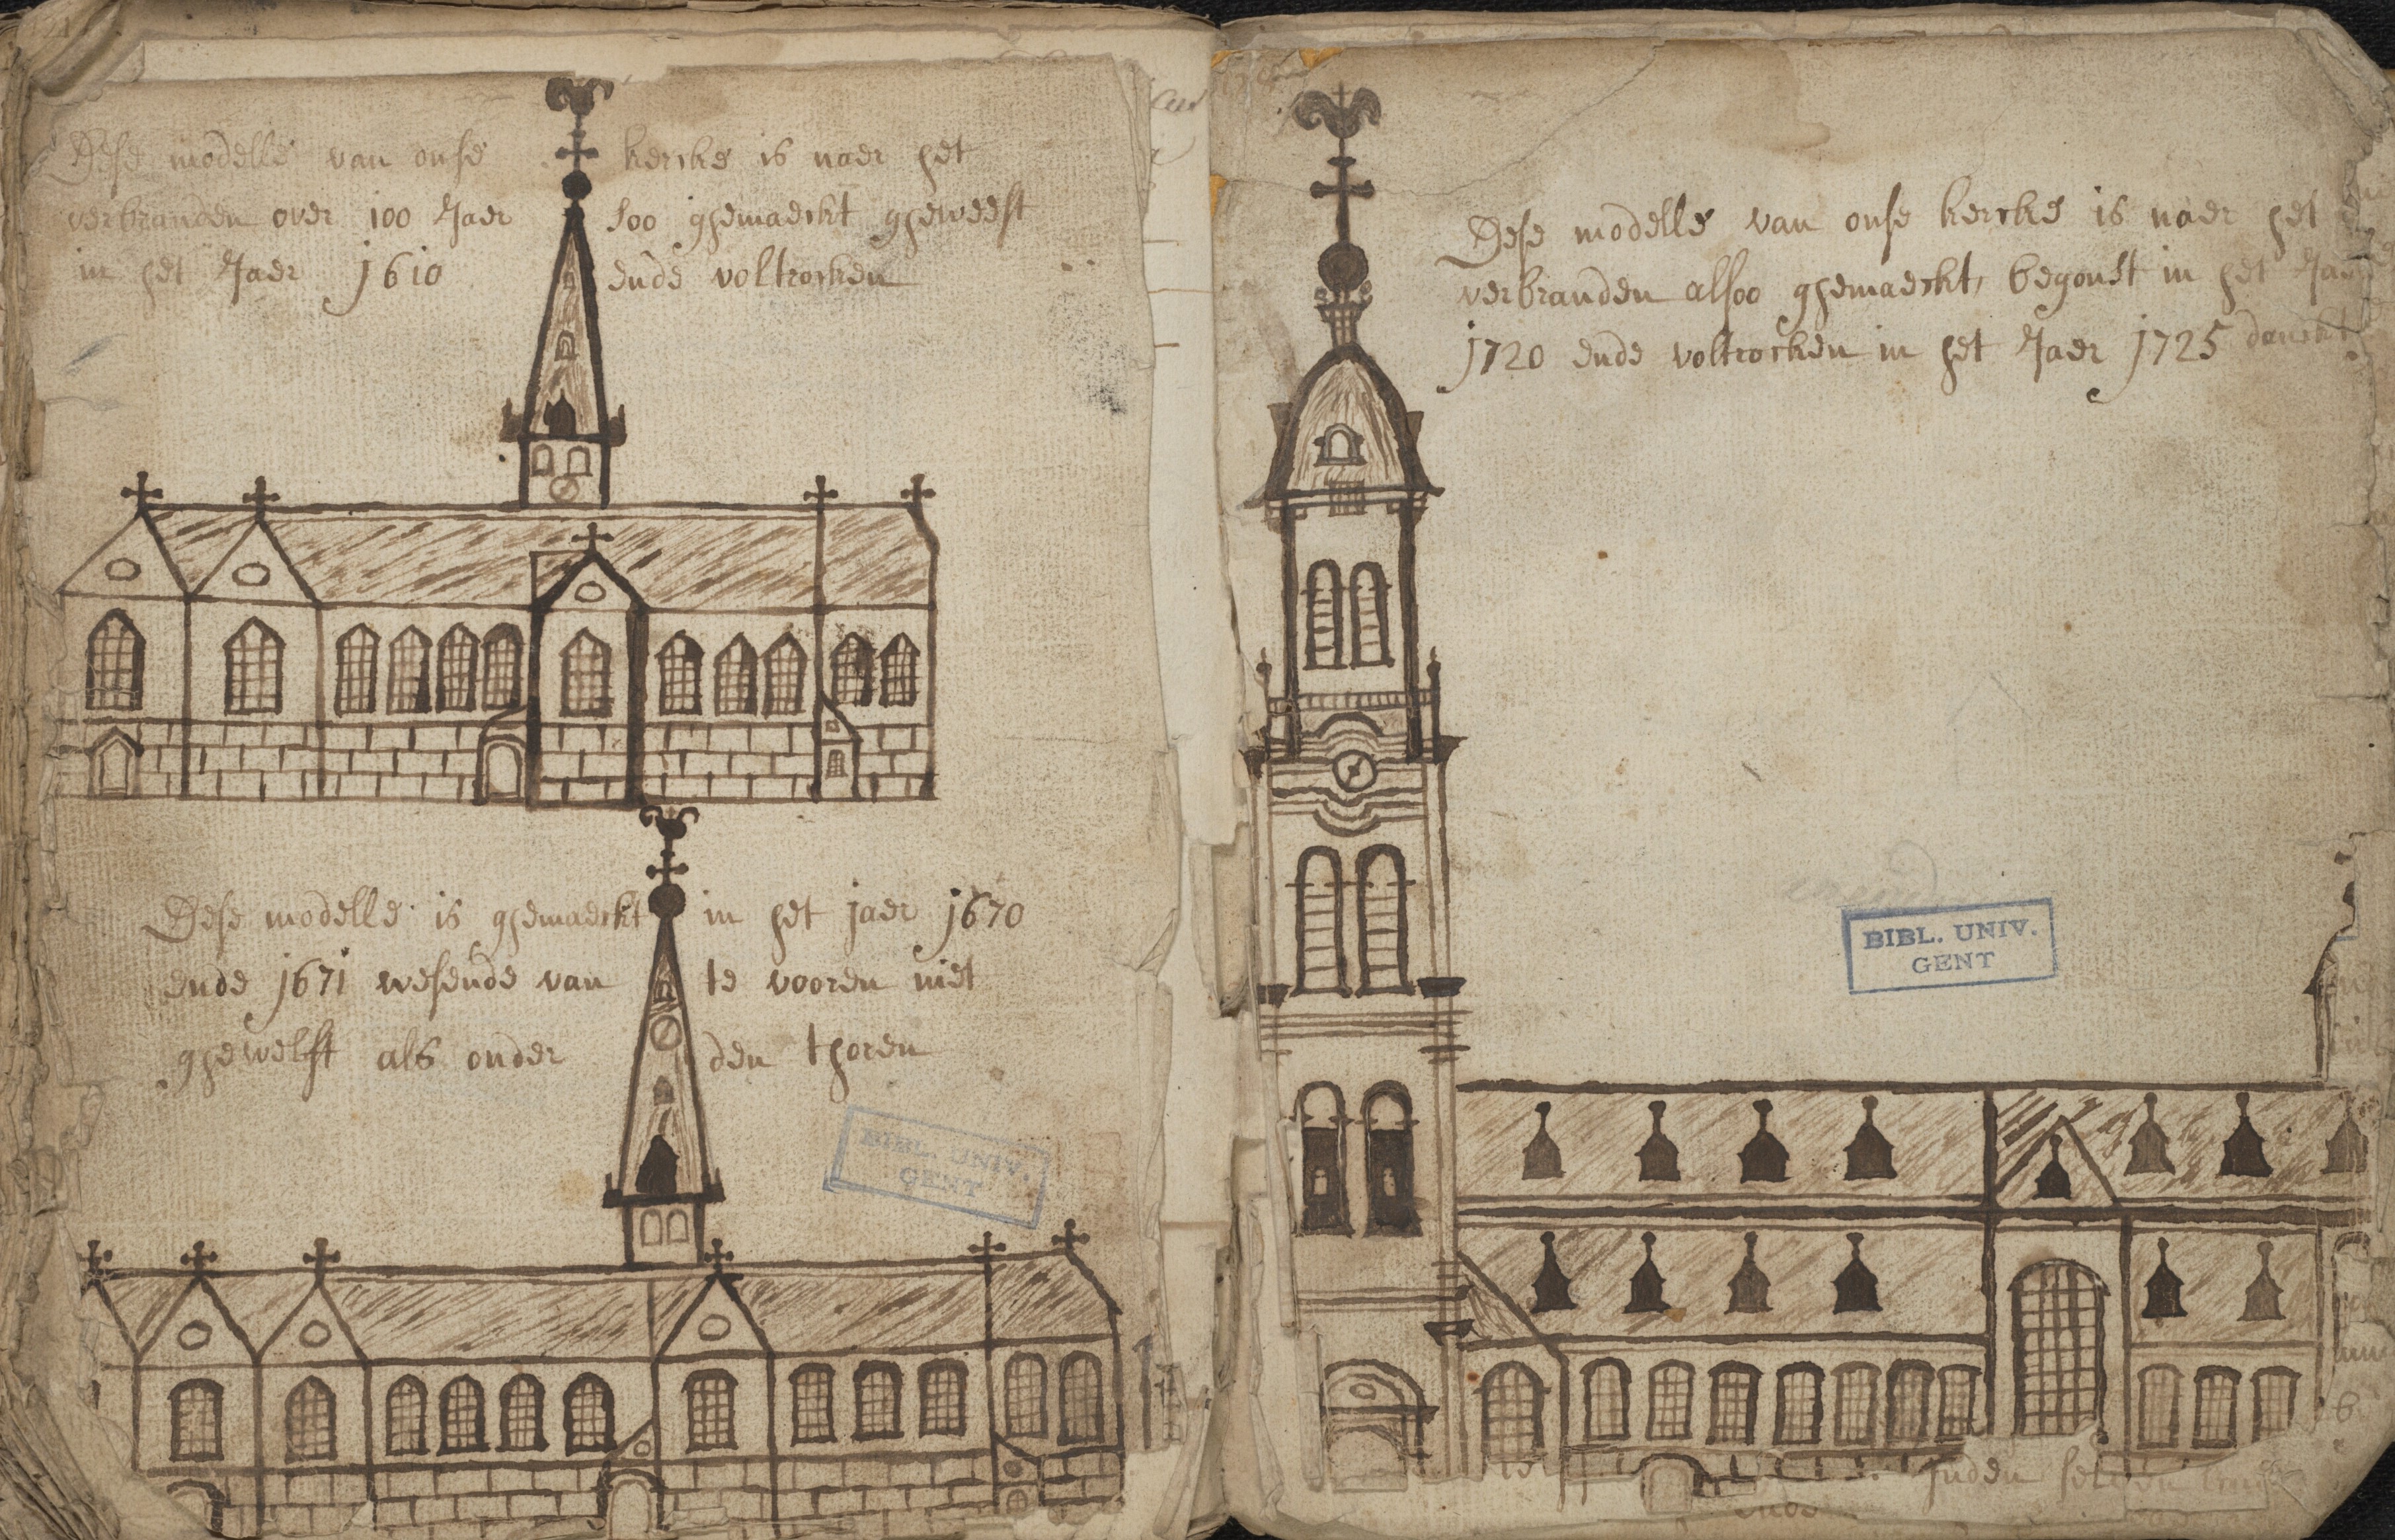 Dese modelle van onse kercke is naer het
verbranden over 100 Jaer soo ghemaeckt gheweest
in het Jaer 1610 ende voltrocken
Dese modelle is ghemaeckt in het jaer 1670
ende 1671 wesende van te vooren niet
ghewelft als onder den thoren
BIBL. UNIV.
GENT
Dese modelle van onse kercke is naer het
verbranden alsoo ghemaeckt, begonst in het Jaer
1720 ende voltrocken in het Jaer 1725
BIBL. UNIV.
GENT